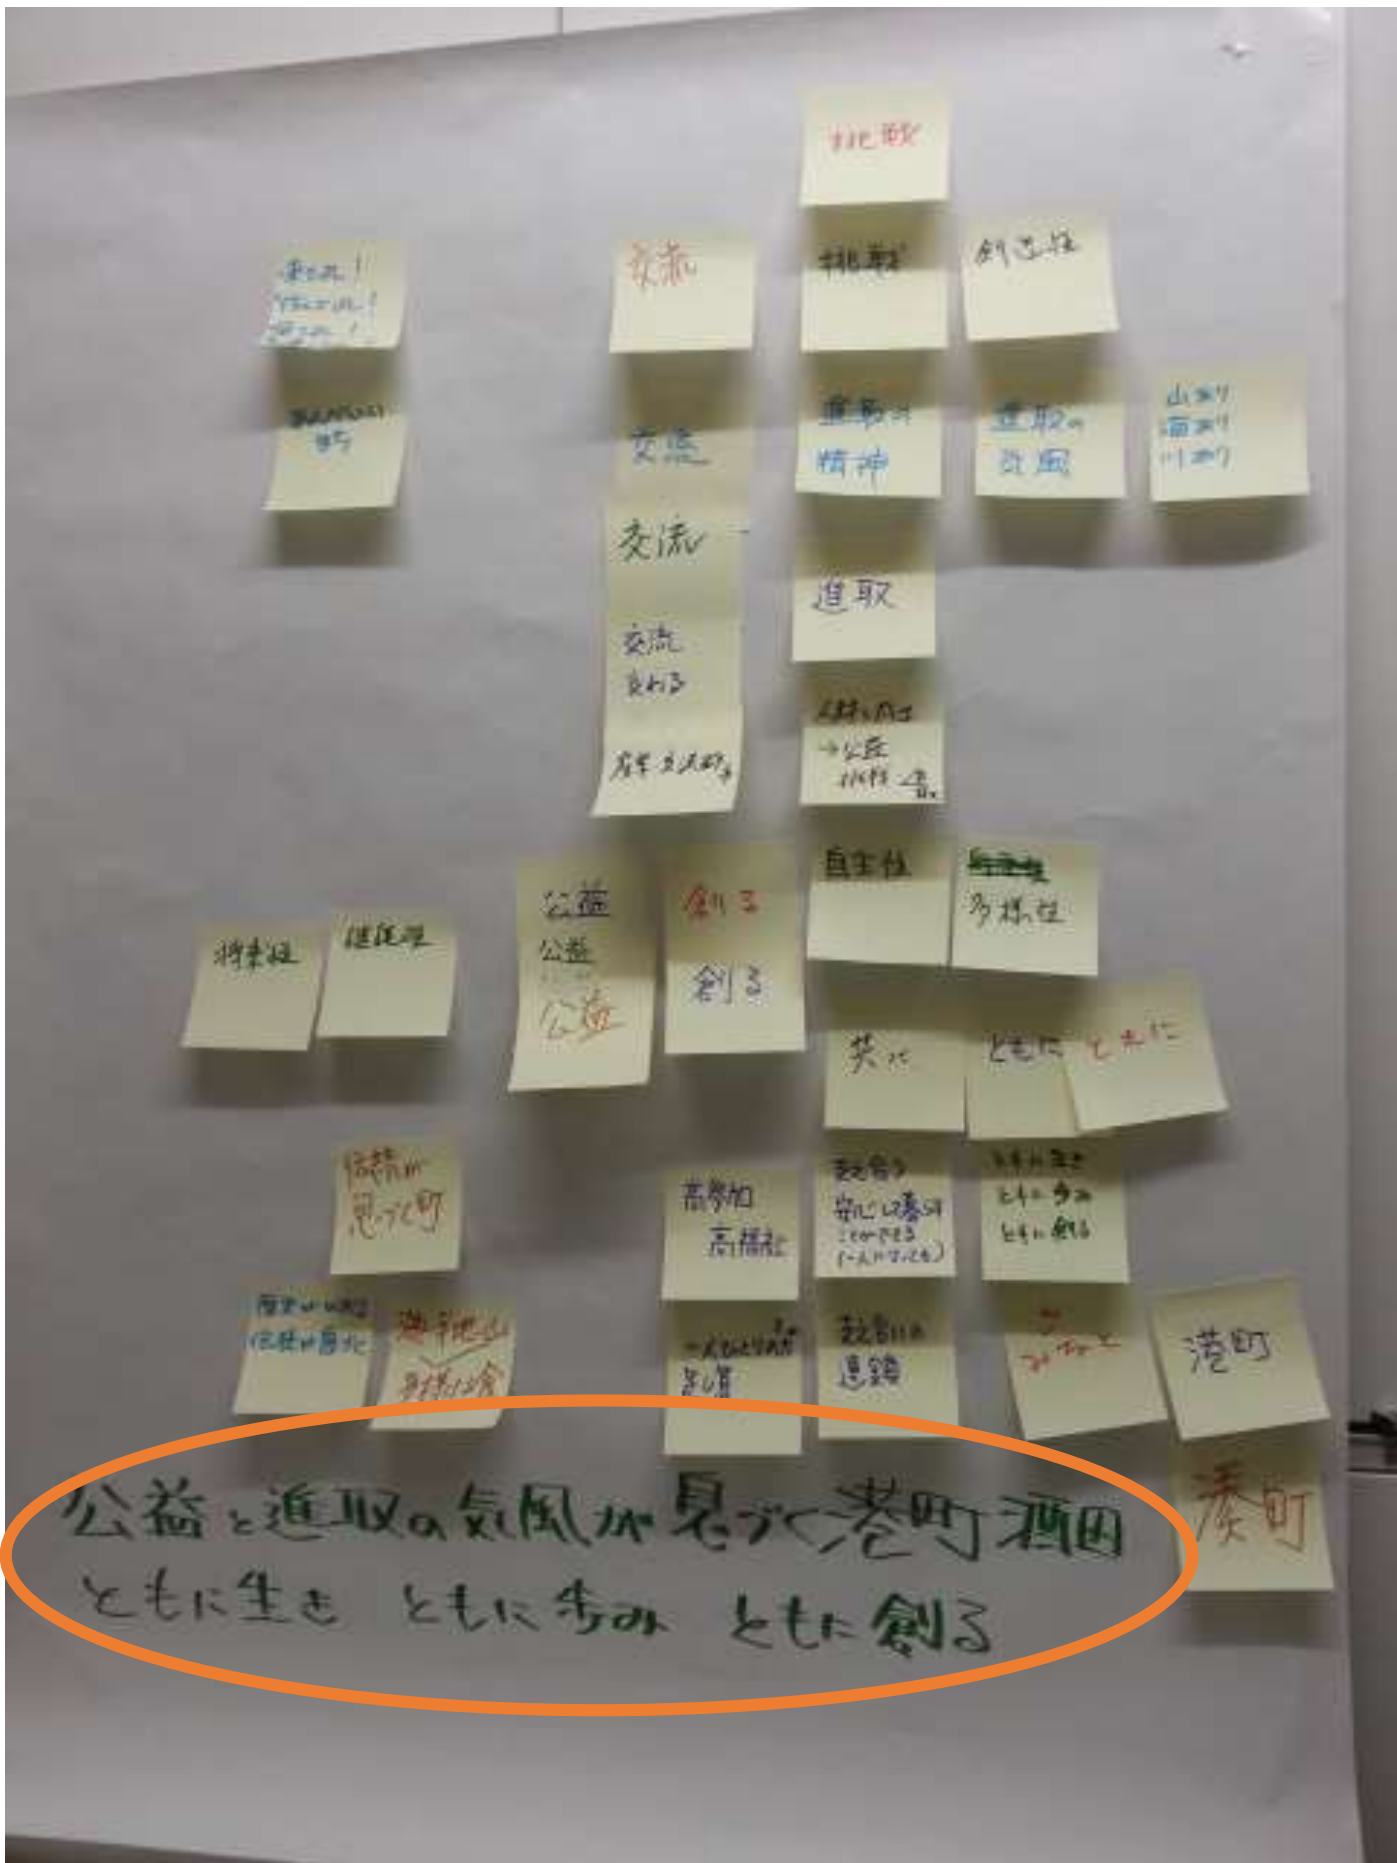 挑戦
交流
挑戦
創造性
交流
進取の
精神
進取の
気風
山あり
海あり
川あり
交流
進取
交流
交わる
→公益
自主性
多様性
将来性
継続性
公益
公益
公益
創る
創る
共に
ともに
ともに
伝統が
息づく町
高参加
高福祉
支え合う
安心して暮らす
ことができる
ともに生き
ともに歩み
ともに創る
支え合いの
連鎖
みなと
港町
湊町
公益と進取の気風が息づく港町酒田
ともに生き ともに歩み ともに創る